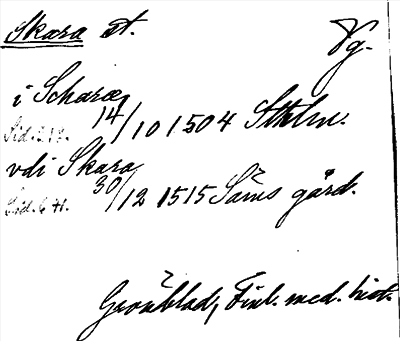 Skara st.
Vg.
i Scharæ
14/10 1504 Sthlm.
vdi Skara
30/12 1515 Säms gård.
Grönblad, Finl. med. hist.